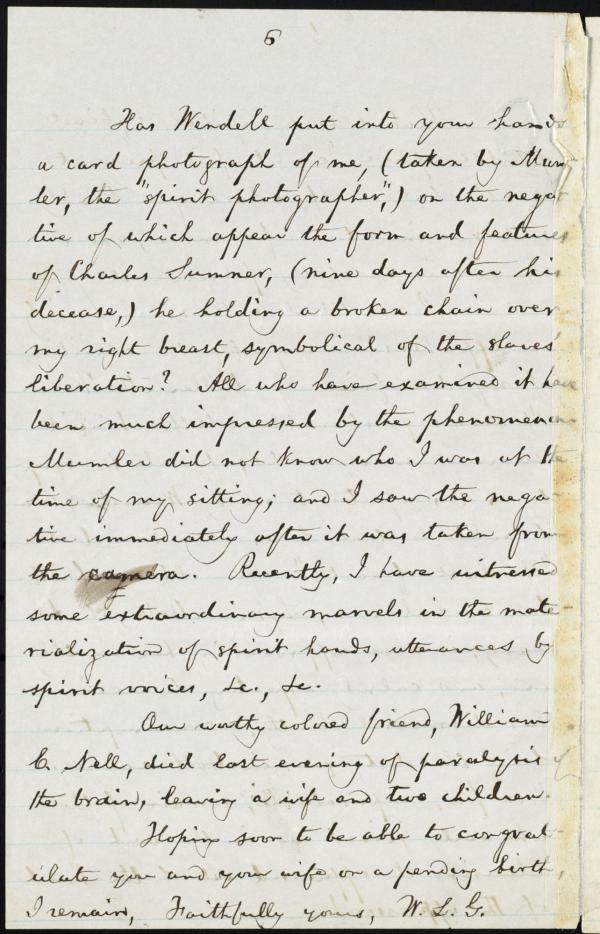 6
Has Wendell put into your hands
a card photograph of me, (taken by Mum-
ler, the "spirit photographer",) on the nega-
tive of which appear the form and features
of Charles Sumner, (nine days after his
decease,) he holding a broken chain over
my right breast, symbolical of the slaves'
liberation? All who have examined it have
been much impressed by the phenomenon.
Mumler did not know who I was at the
time of my sitting; and I saw the nega-
tive immediately after it was taken from
the camera. Recently, I have witnessed
some extraordinary marvels in the mate-
rialization of spirit hands, utterances by
spirit voices, &c., &c.
Our worthy colored friend, William
C. Nell, died last evening of paralysis of
the brain, leaving a wife and two children.
Hoping soon to be able to congrat-
ulate you and your wife on a pending birth,
I remain, Faithfully yours, W. L. G.